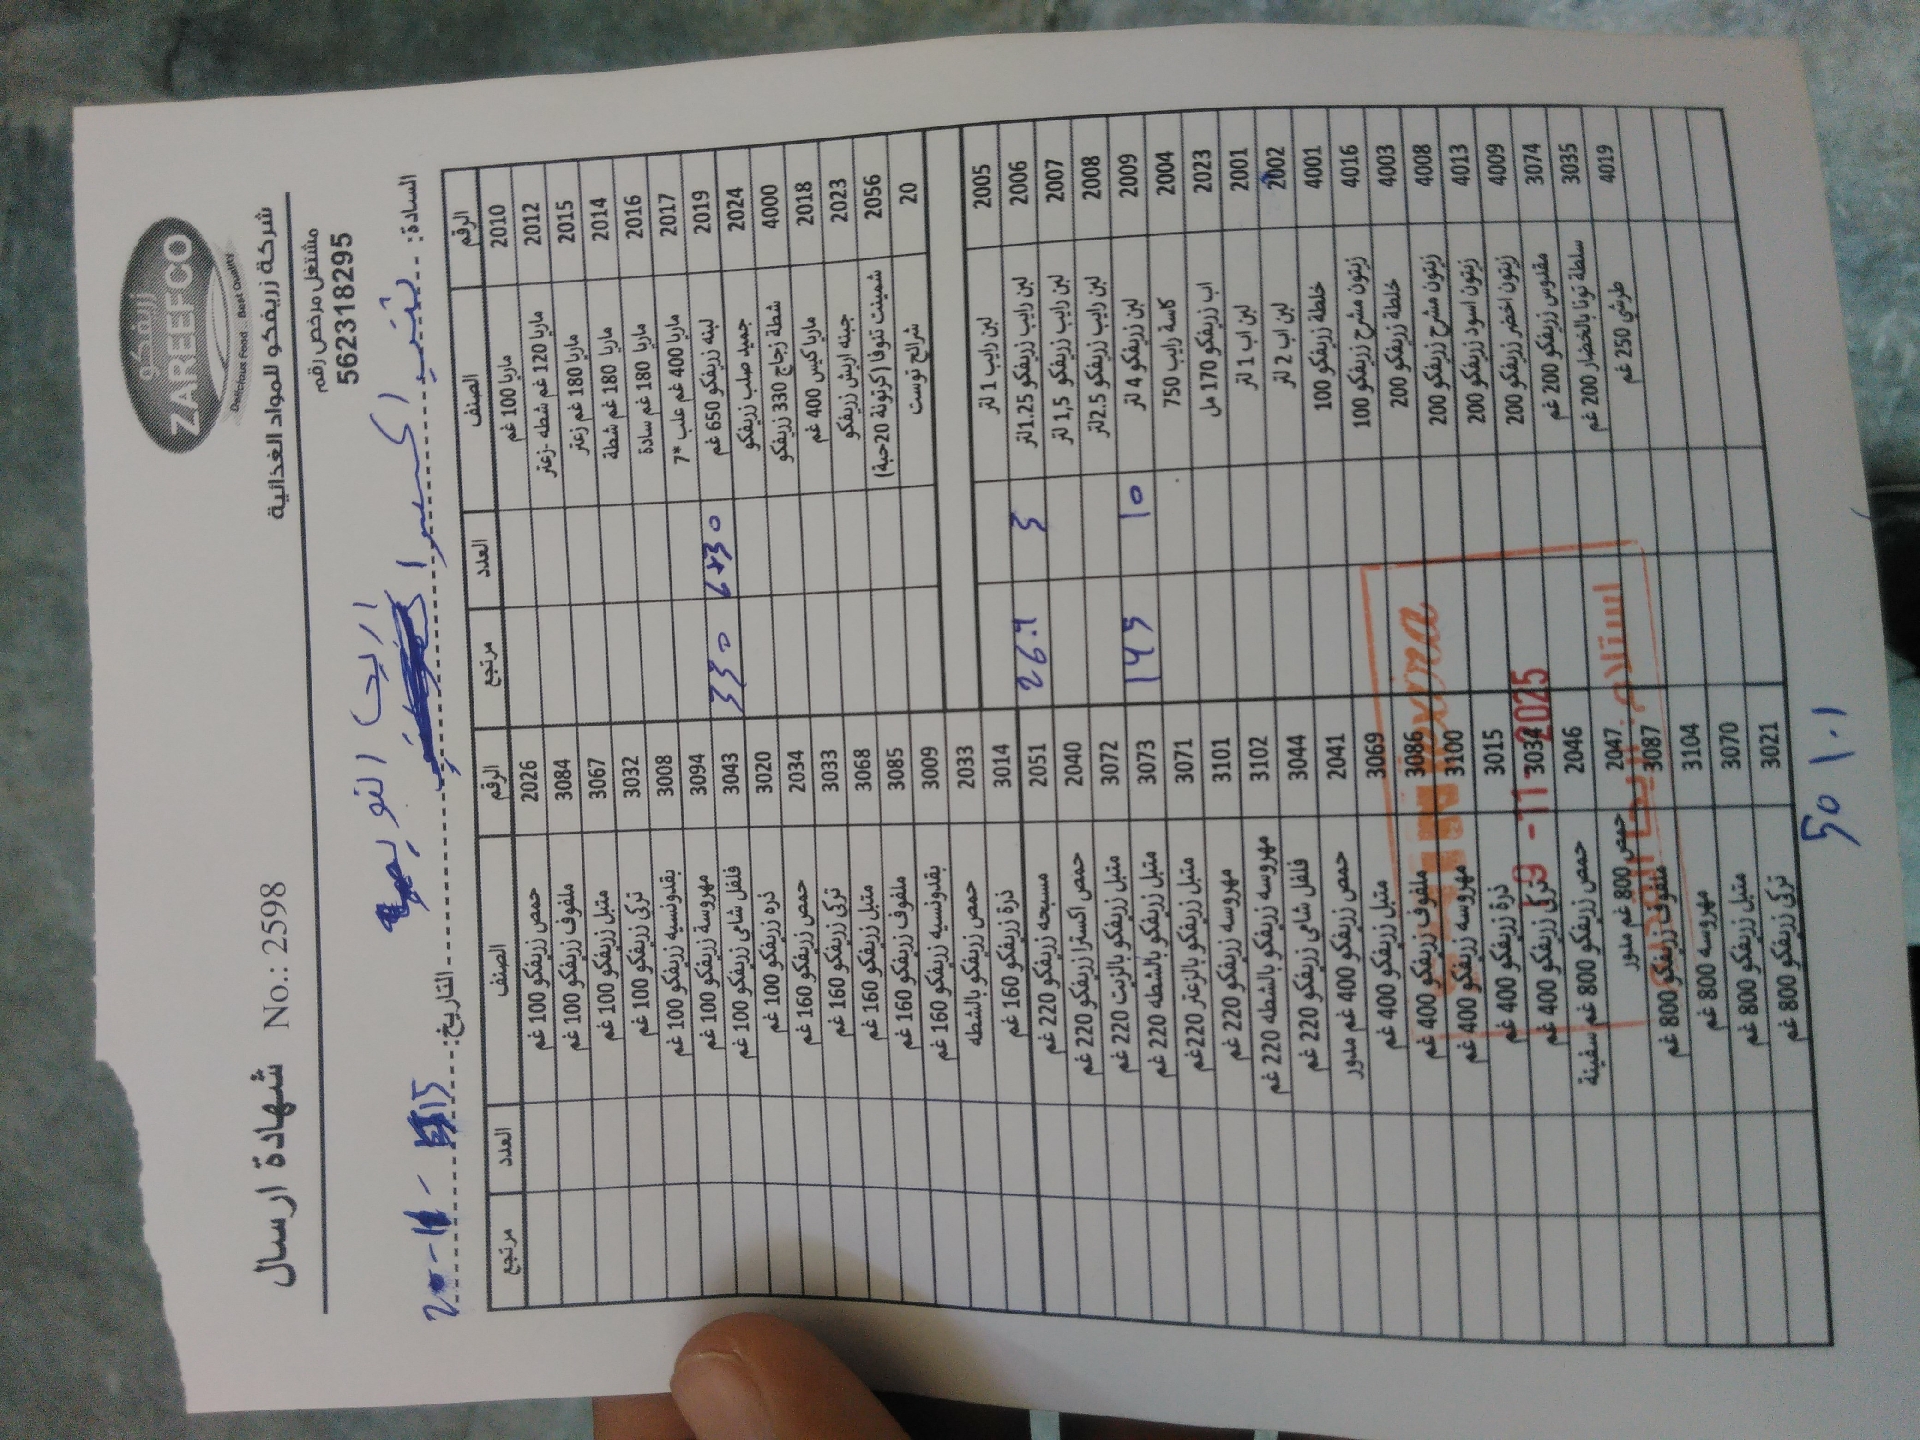 زريفكو
ZAREEFCO
Delicious Food .. Best Quality
شهادة ارسال No.: 2598
شركة زريفكو للمواد الغذائية
مشتغل مرخص رقم
562318295
السادة:
التاريخ:
الرقم الصنف العدد مرتجع الرقم الصنف العدد مرتجع
2010 ماريا 100 غم
2012 ماريا 120 غم شطه -زعتر
2015 ماريا 180 غم زعتر
2014 ماريا 180 غم شطة
2016 ماريا 180 غم سادة
2017 ماريا 400 غم علب *7
2019 لبنه زريفكو 650 غم
2024 جميد صلب زريفكو
4000 شطة زجاج 330 زريفكو
2018 ماريا كيس 400 غم
2023 جبنه اريش زريفكو
2056 شمينت توفا (كرتونة 20حبة)
20 شرائح توست
2005 لبن رايب 1 لتر
2006 لبن رايب زريفكو 1.25لتر
2007 لبن رايب زريفكو 1,5 لتر
2008 لبن رايب زريفكو 2.5لتر
2009 لبن زريفكو 4 لتر ١٥
2004 كاسة رايب 750
2023 اب زريفكو 170 مل
2001 لبن اب 1 لتر
2002 لبن اب 2 لتر
4001 خلطة زريفكو 100
4016 زيتون مشرح زريفكو 100
4003 خلطة زريفكو 200
4008 زيتون مشرح زريفكو 200
4013 زيتون اسود زريفكو 200
4009 زيتون اخضر زريفكو 200
3074 مقدوس زريفكو 200 غم
3035 سلطة تونا بالخضار 200 غم
4019 طرشي 250 غم
2026 حمص زريفكو 100 غم
3084 ملفوف زريفكو 100 غم
3067 متبل زريفكو 100 غم
3032 تركي زريفكو 100 غم
3008 بقدونسيه زريفكو 100 غم
3094 مهروسة زريفكو 100 غم
3043 فلفل شامي زريفكو 100 غم
3020 ذره زريفكو 100 غم
2034 حمص زريفكو 160 غم
3033 تركي زريفكو 160 غم
3068 متبل زريفكو 160 غم
3085 ملفوف زريفكو 160 غم
3009 بقدونسيه زريفكو 160 غم
2033 حمص زريفكو بالشطه
3014 ذرة زريفكو 160 غم
2051 مسبحه زريفكو 220 غم
2040 حمص اكسترا زريفكو 220 غم
3072 متبل زريفكو بالزيت 220 غم
3073 متبل زريفكو بالشطه 220 غم
3071 متبل زريفكو بالزعتر 220غم
3101 مهروسه زريفكو 220 غم
3102 مهروسه زريفكو بالشطه 220 غم
3044 فلفل شامي زريفكو 220 غم
2041 حمص زريفكو 400 غم مدور
3069 متبل زريفكو 400 غم
3086 ملفوف زريفكو 400 غم
3100 مهروسه زريفكو 400 غم
3015 ذرة زريفكو 400 غم
3034 تركي زريفكو 400 غم
2046 حمص زريفكو 800 غم سفينة
2047 حمص 800 غم مدور
3087 ملفوف زريفكو 800 غم
3104 مهروسه 800 غم
3070 متبل زريفكو 800 غم
3021 تركي زريفكو 800 غم
-11- 2025
استلام